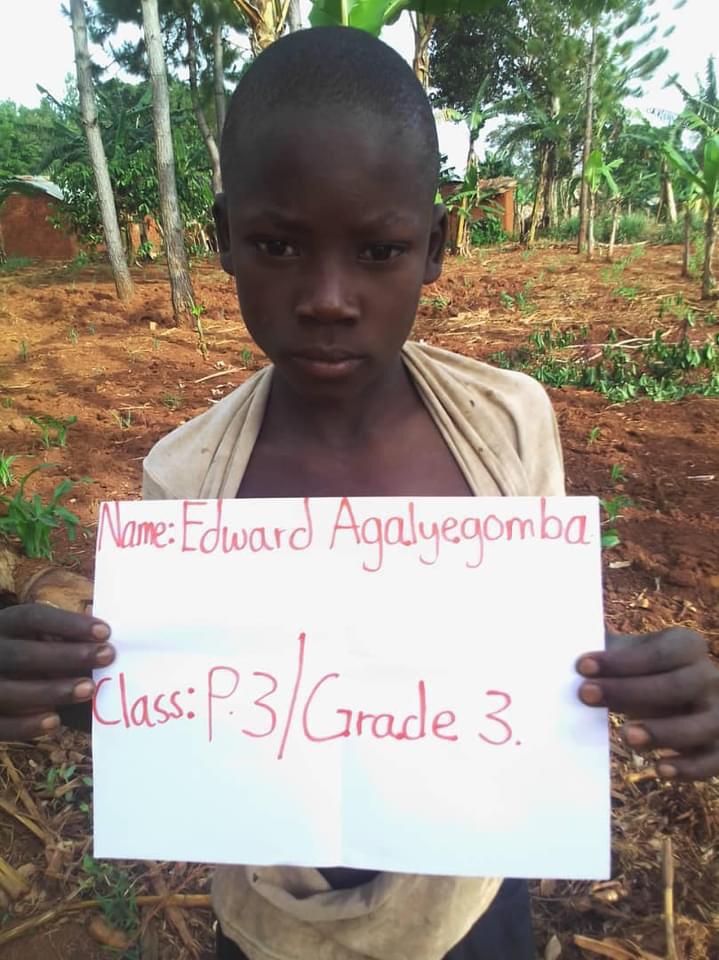 Name: Edward Agalyegomba
Class: P.3/Grade 3.